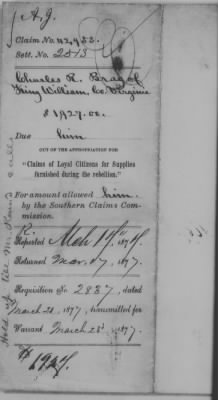 A. J.
Claim No. 42,953.
Sett. No. 2813
Charles R. Bragg of
King William, Co. Virginia
$1927.00.
Due him
OUT OF THE APPROPRIATION FOR
"Claims of Loyal Citizens for Supplies
furnished during the rebellion."
For amount allowed him
by the Southern Claims Com-
mission.
R.
Reported Mch 19" 1877.
Returned Mar. 27, 1877
Requisition No. 2887, dated
March 28, 1877, transmitted for
Warrant March 28", 1877.
$1927.
Hold up till Mr. calls